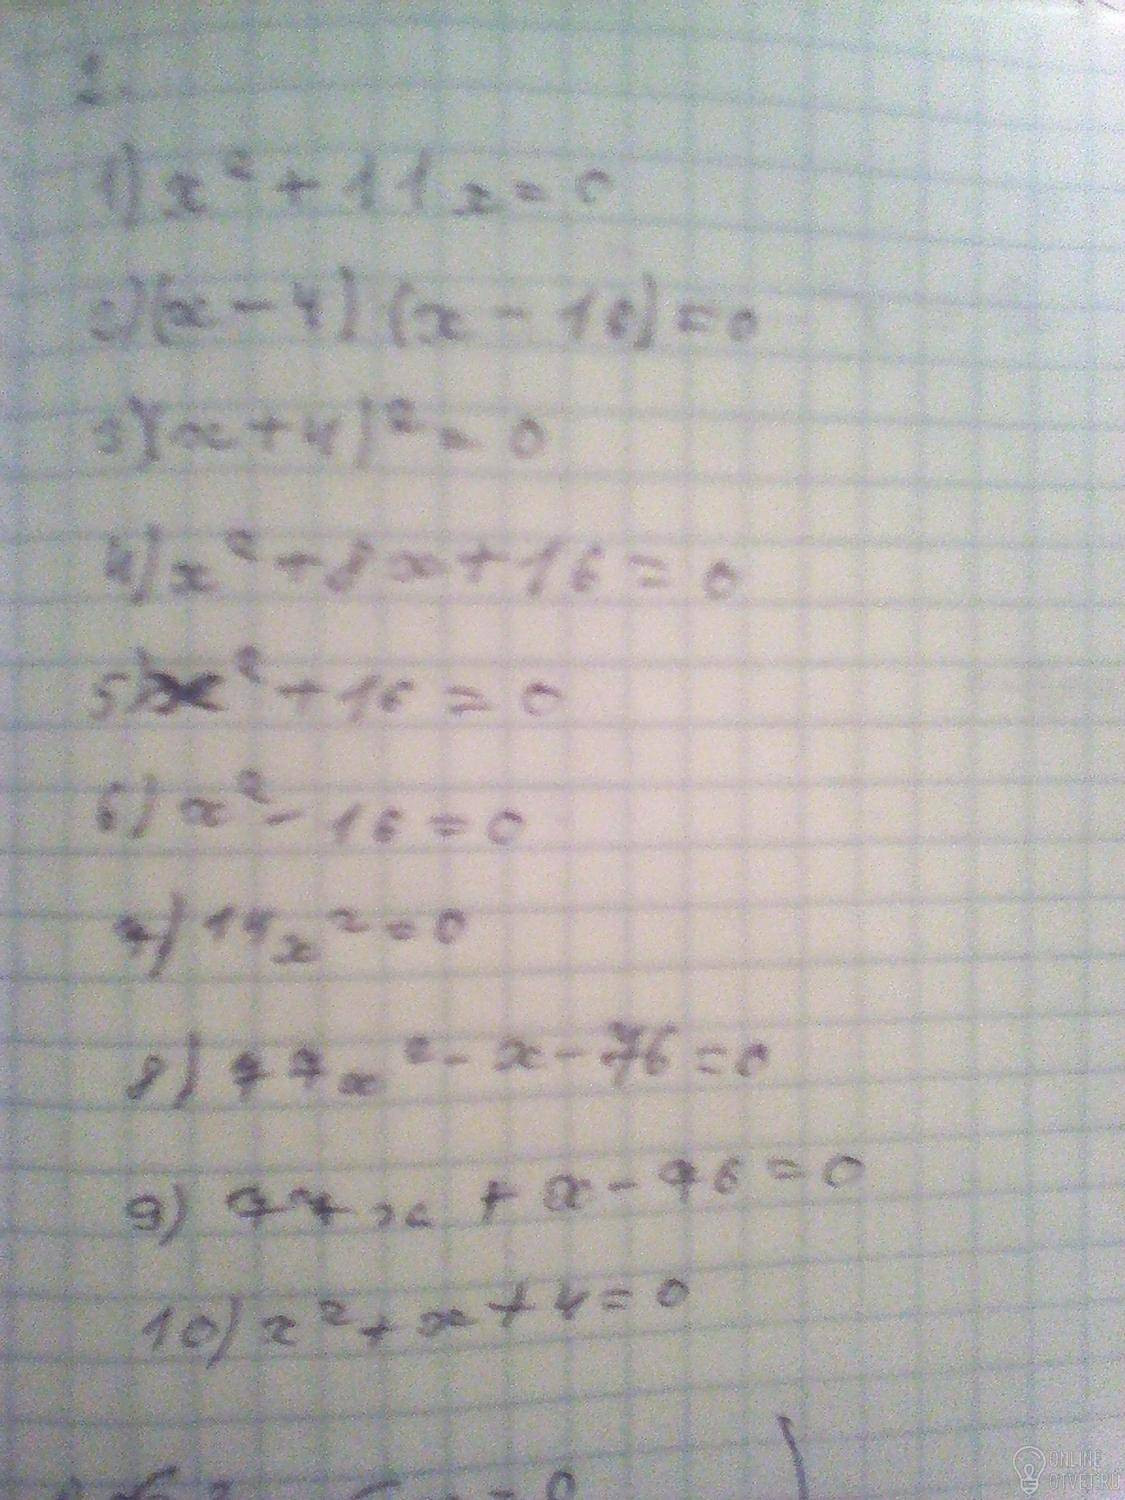 2.
1) x² + 11x = 0
2) (x - 4) (x - 16) = 0
3) (x + 4)² = 0
4) x² + 8x + 16 = 0
5) x² + 16 = 0
6) x² - 16 = 0
7) 14x² = 0
8) 77x² - x - 76 = 0
9) 77x + x - 76 = 0
10) x² + x + 4 = 0
ONLINE
OTVET.RU